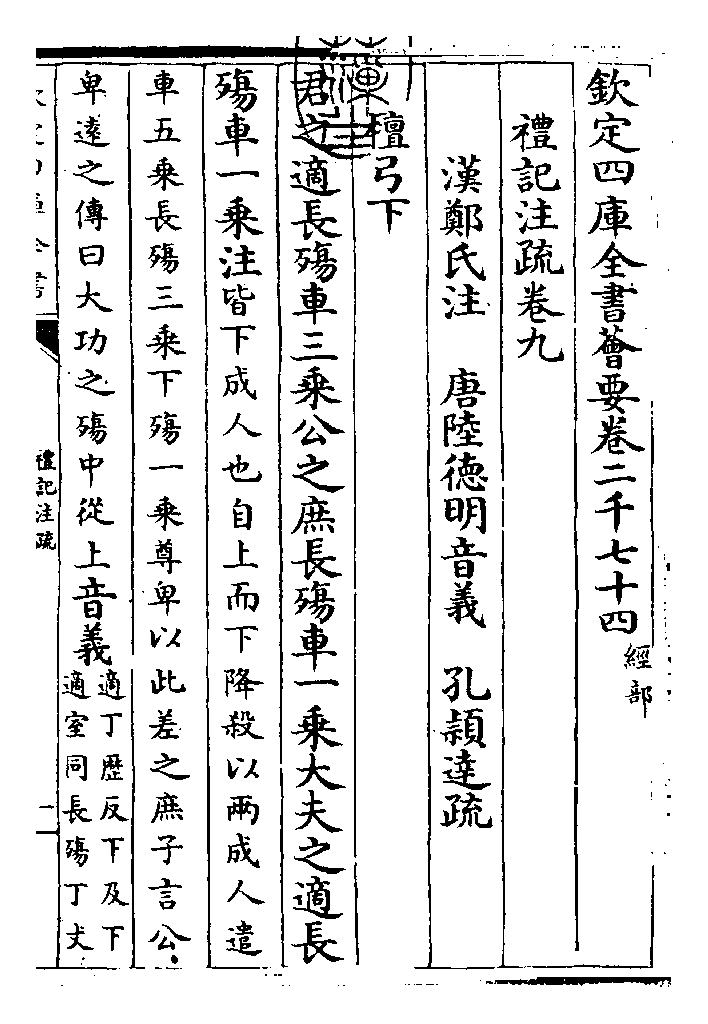 欽定四庫全書薈要卷二千七十四 經部
禮記注疏卷九
漢鄭氏注 唐陸德明音義 孔穎達疏
檀弓下
君之適長殤車三乘公之庶長殤車一乘大夫之適長
殤車一乘注皆下成人也自上而下降殺以兩成人遣
車五乘長殤三乘下殤一乘尊卑以此差之庶子言公
卑逺之傳曰大功之殤中從上音義適丁歴反下及下
適室同長殤丁丈
禮記注疏
一